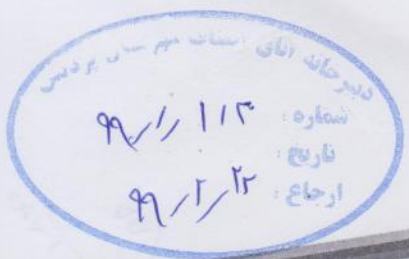 دبیرخانه اتاق اصناف شهرستان پردیس
شماره : ۹۹/۱/۱۱۳
تاریخ :
ارجاع : ۹۹/۲/۲۲